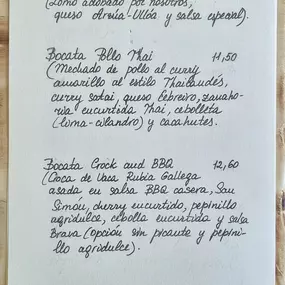 (Lomo adobado por nosotros,
queso Arzúa-Ulloa y salsa especial).
Bocata Pollo Thai 11,50
(Mechado de pollo al curry
amarillo al estilo Thailandés,
curry satai, queso Cebreiro, zanaho-
ria encurtida Thai, cebolleta
(lima-cilandro) y cacahutes.
Bocata Crock and BBQ 12,60
(Coca de Vaca Rubia Gallega
asada en salsa BBQ casera, San
Simón, cherry encurtido, pepinillo
agridulce, cebolla encurtida y salsa
Brava (opción sin picante y pepini-
llo agridulce).